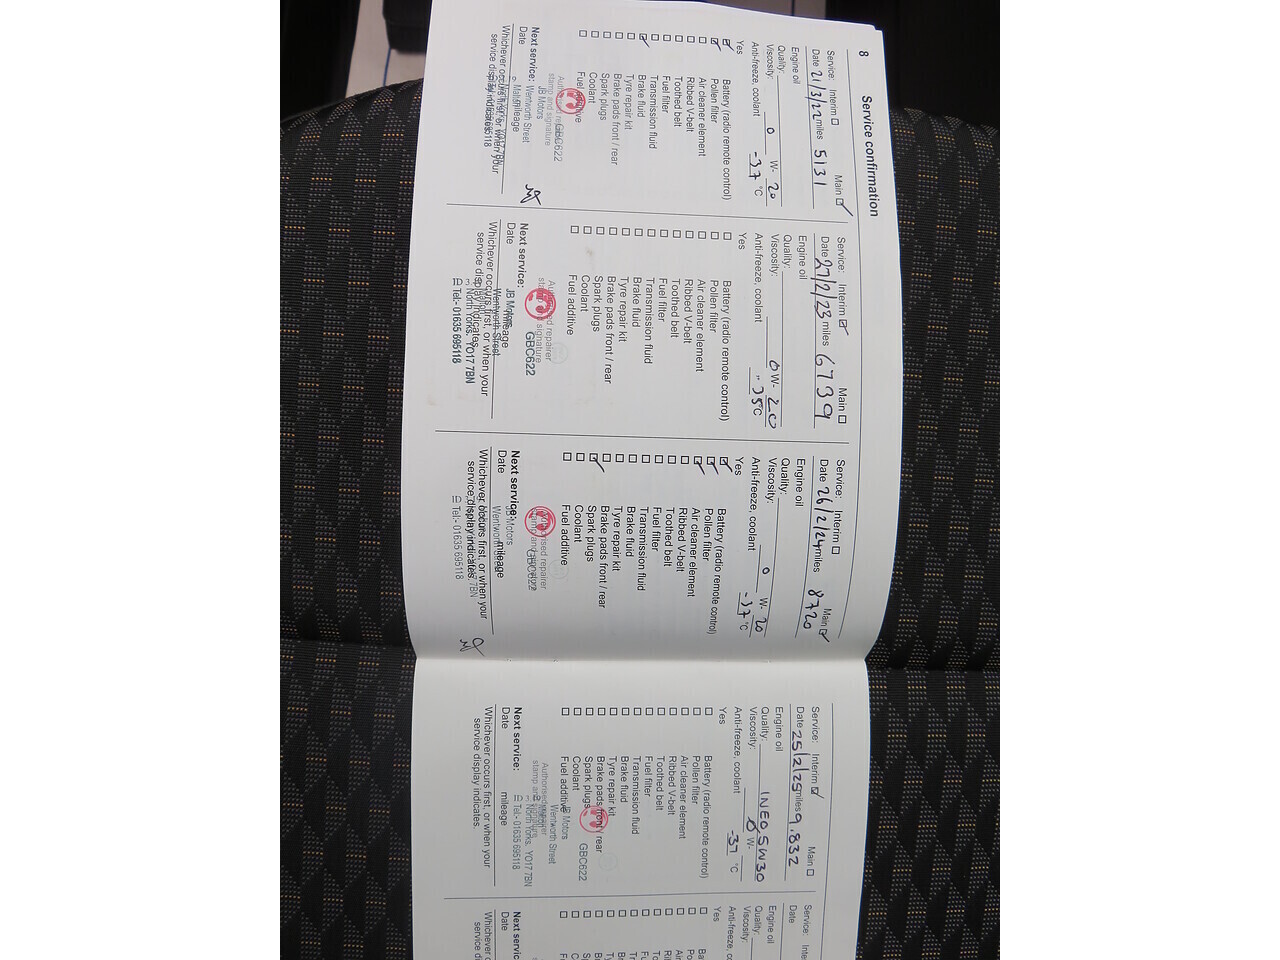 8
Service confirmation
Service: Interim Main
Date 21/3/22 miles 5131
Engine oil
Quality:
Viscosity: 0 W- 20
Anti-freeze, coolant -37 °C
Yes
Battery (radio remote control)
Pollen filter
Air cleaner element
Ribbed V-belt
Toothed belt
Fuel filter
Transmission fluid
Brake fluid
Tyre repair kit
Brake pads front / rear
Spark plugs
Coolant
Fuel additive
GBC622
Next service: JB Motors
Wentworth Street
Date mileage
Whichever occurs first, or when your
service display indicates.
Service: Interim Main
Date 27/2/23 miles 6739
Engine oil
Quality:
Viscosity: 0 W- 20
Anti-freeze, coolant °C
Yes
Battery (radio remote control)
Pollen filter
Air cleaner element
Ribbed V-belt
Toothed belt
Fuel filter
Transmission fluid
Brake fluid
Tyre repair kit
Brake pads front / rear
Spark plugs
Coolant
Fuel additive
Authorised repairer
stamp and signature
GBC622
Next service: JB Motors
Date mileage
Wentworth Street
Whichever occurs first, or when your
service display indicates.
North Yorks. YO17 7BN
Tel:- 01635 695118
Service: Interim Main
Date 26/2/24 miles 8720
Engine oil
Quality:
Viscosity: 0 W- 20
Anti-freeze, coolant -37 °C
Yes
Battery (radio remote control)
Pollen filter
Air cleaner element
Ribbed V-belt
Toothed belt
Fuel filter
Transmission fluid
Brake fluid
Tyre repair kit
Brake pads front / rear
Spark plugs
Coolant
Fuel additive
Authorised repairer
stamp and signature
GBC622
Next service: JB Motors
Wentworth
Date mileage
Whichever occurs first, or when your
service display indicates.
Tel:- 01635 695118
Service: Interim Main
Date 25/2/25 miles 9,832
Engine oil
Quality: INEO, 5W30
Viscosity: 0 W-
Anti-freeze, coolant -37 °C
Yes
Battery (radio remote control)
Pollen filter
Air cleaner element
Ribbed V-belt
Toothed belt
Fuel filter
Transmission fluid
Brake fluid
Tyre repair kit
Brake pads front / rear
Spark plugs
Coolant GBC622
Fuel additive JB Motors
Wentworth Street
Authorised repairer
stamp and signature
North Yorks. YO17 7BN
Next service: Tel:- 01635 695118
Date mileage
Whichever occurs first, or when your
service display indicates.
Service:
Date
Engine oil
Quality:
Viscosity:
Anti-freeze, co
Yes
Next servic
Date
Whichever
service d